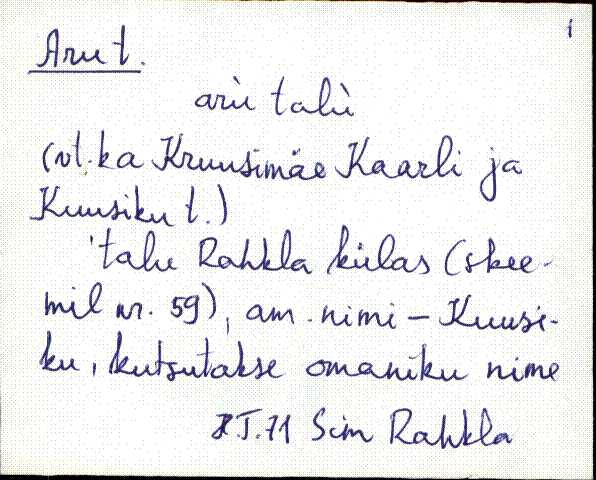 1
Aru t.
arù talù
(vt. ka Kruusimäe Kaarli ja
Kuusiku t.)
'talu Rahkla külas (skee-
mil nr. 59), am. nimi – Kuusi-
ku, kutsutakse omaniku nime
T.71 Sim Rahkla